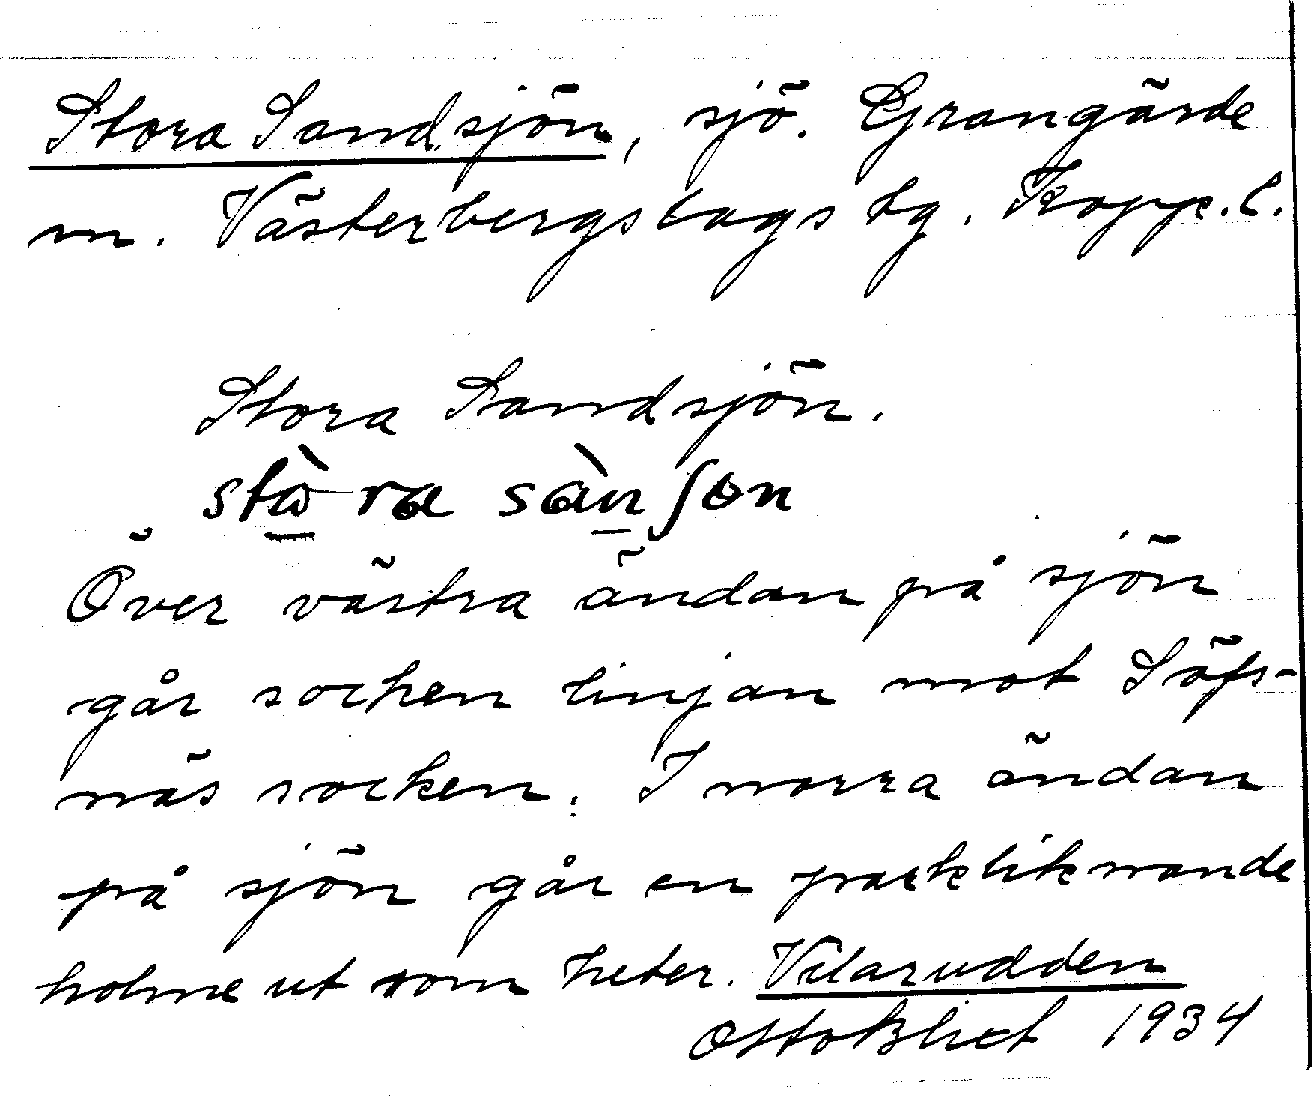 Stora Sandsjön, sjö. Grangärde
m. Västerbergslags tg. Kopp.l.
Stora Sandsjön.
Över västra ändan på sjön
går socken linjan mot Säfs-
näs socken. I norra ändan
på sjön går en parkliknande
holme ut som heter. Vilarudden
Otto Blixt 1934